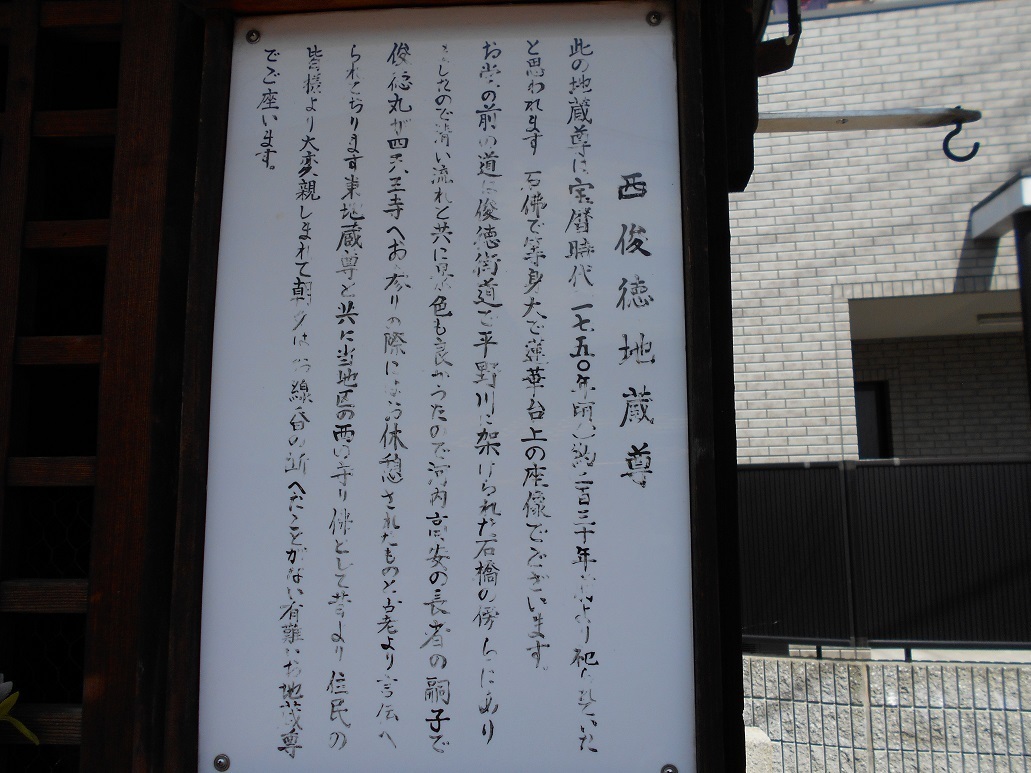 西俊徳地蔵尊
此の地蔵尊は宝暦時代一七五〇年頃(約二百三十年 より祀られていた
と思われます 石佛で等身大で蓮華台上の座像でございます。
お堂の前の道は俊徳街道で平野川に架けられた石橋の傍らにあり
ましたので清い流れと共に景色も良かったので河内高安の長者の嗣子で
俊徳丸が四天王寺へお参りの際には お休憩されたものと古老より言伝へ
られております東地蔵尊と共に当地区の西の守り佛として昔より住民の
皆様より大変親しまれて朝夕は お線香の断へたことがない有難いお地蔵尊
でご座います。